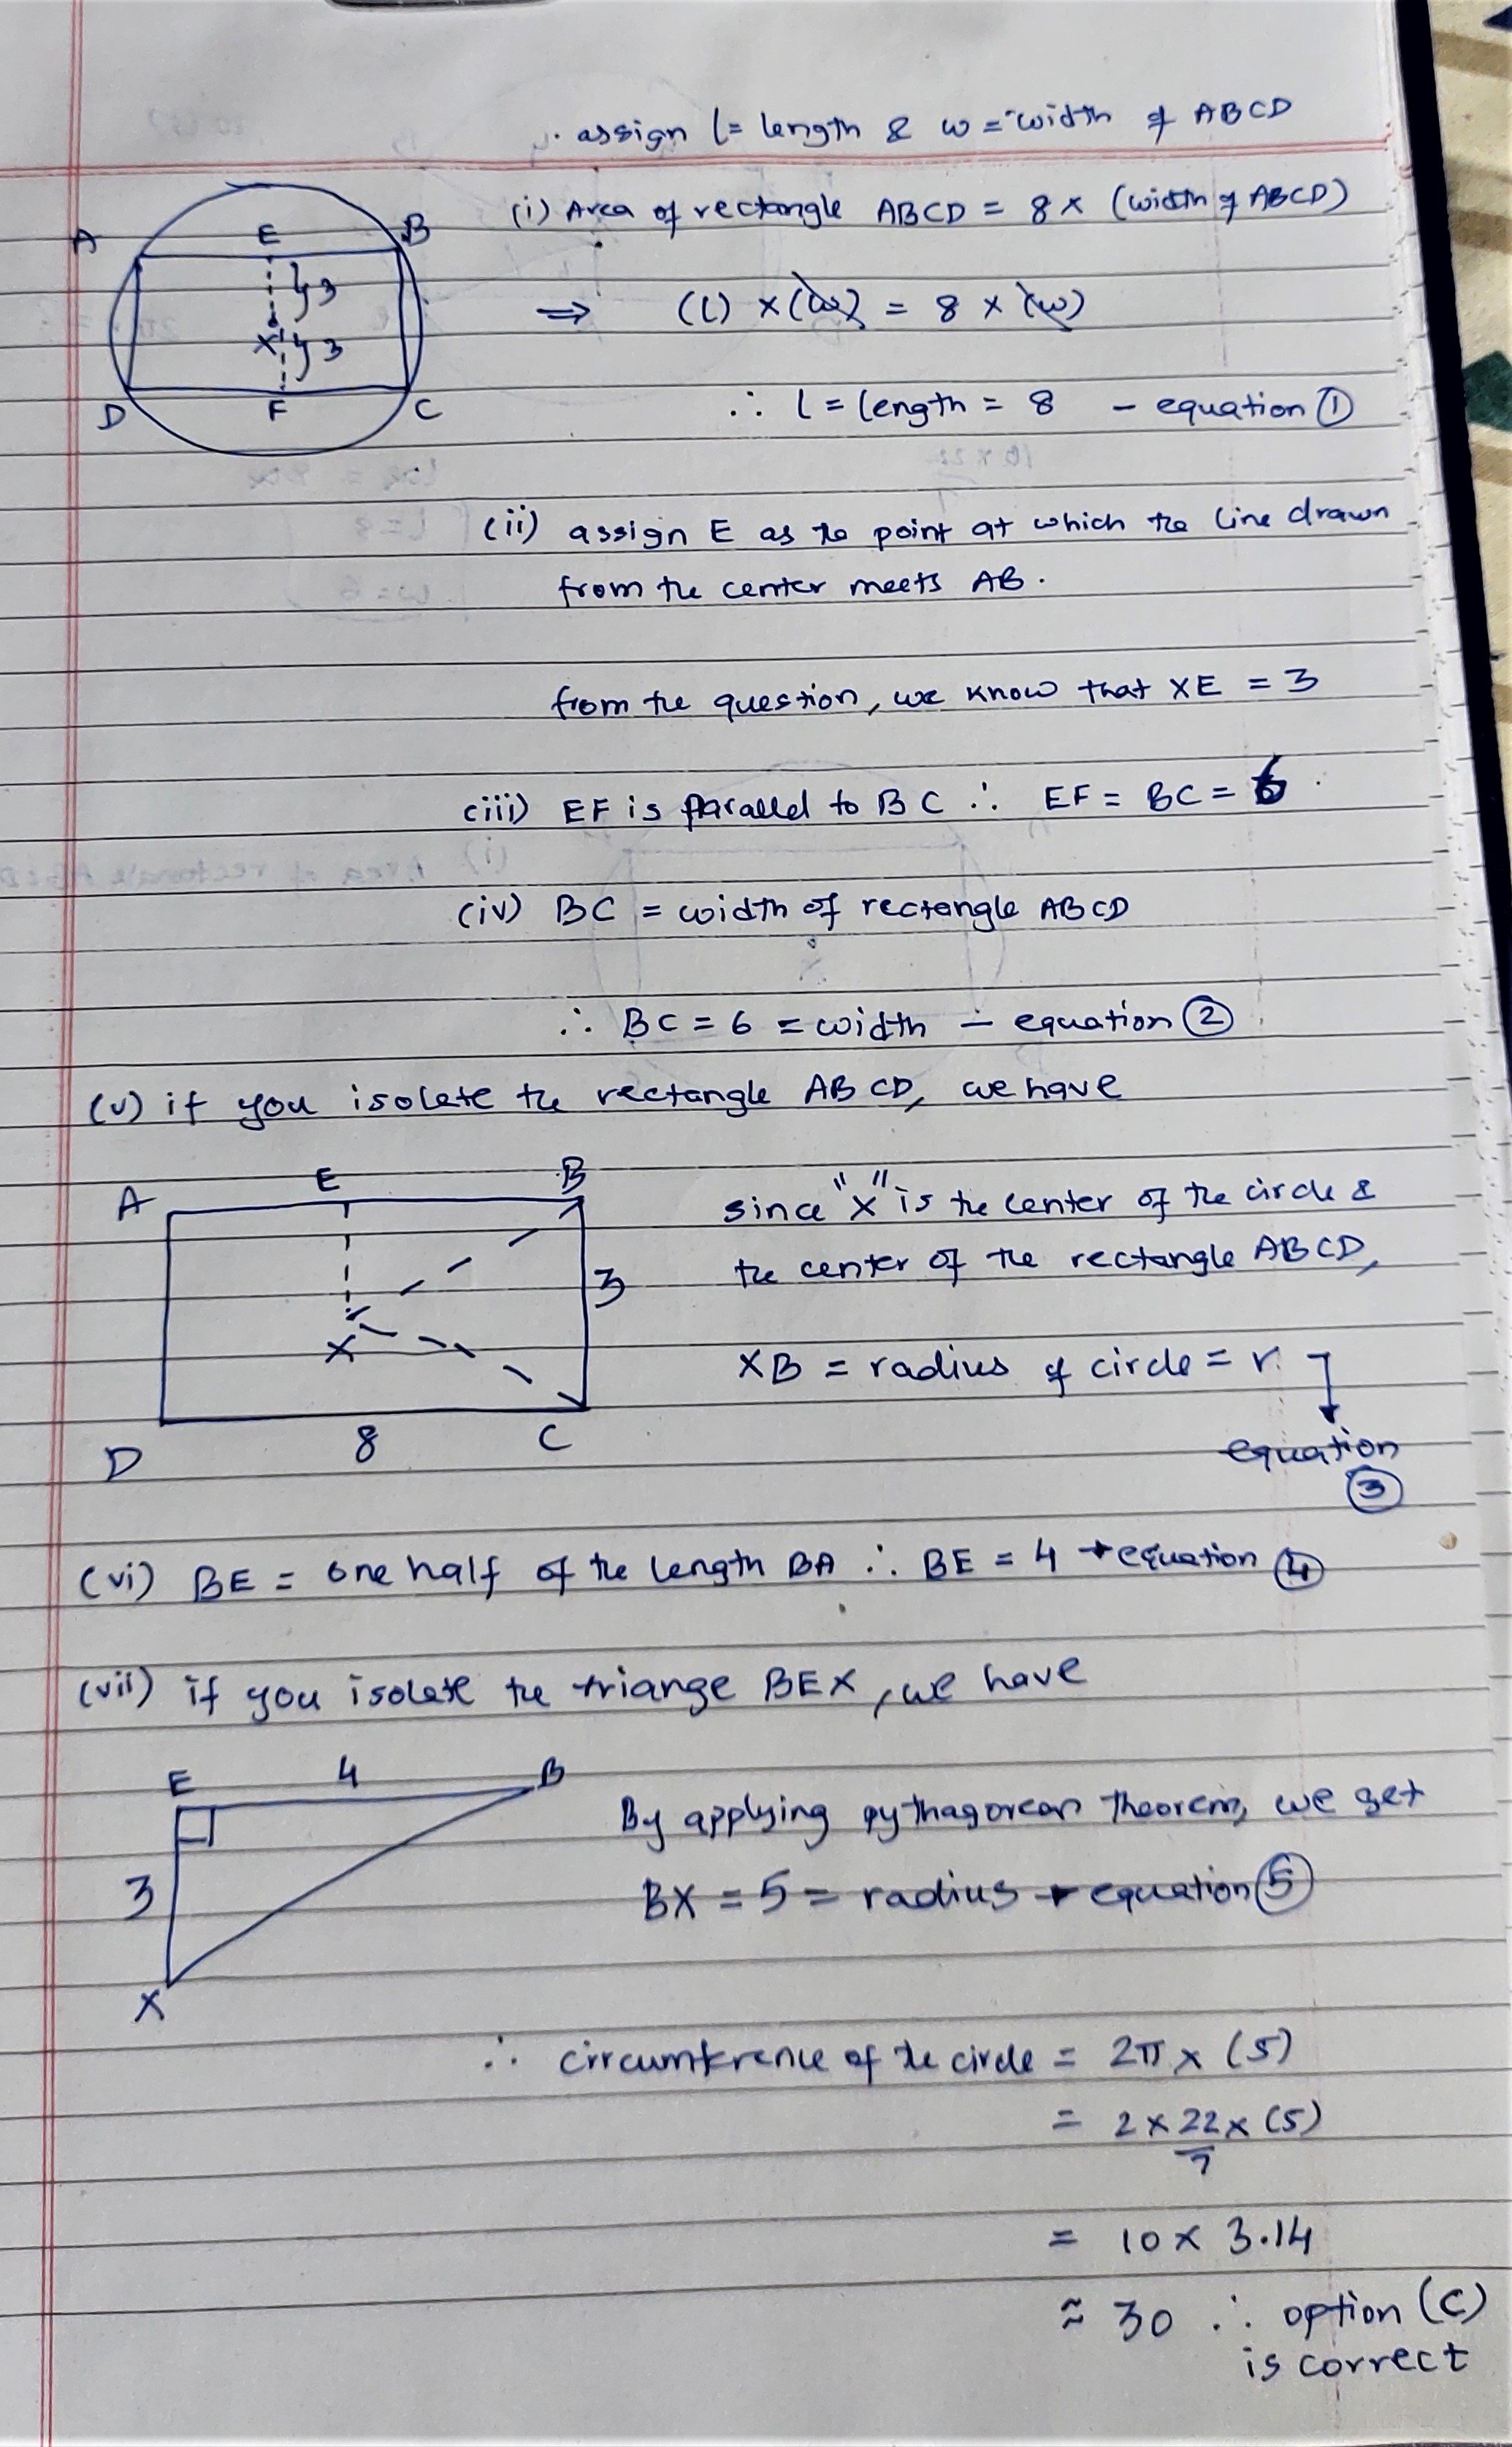 . assign l = length & w = width of ABCD
(i) Area of rectangle ABCD = 8 x (width of ABCD)
A E B
3
⇒ (l) x (w) = 8 x (w)
X 3
D F C
∴ l = length = 8 - equation ①
(ii) assign E as the point at which the line drawn
from the center meets AB.
from the question, we know that XE = 3
(iii) EF is parallel to BC ∴ EF = BC = 6
(iv) BC = width of rectangle ABCD
∴ BC = 6 = width - equation ②
(v) if you isolate the rectangle ABCD, we have
A E B
since "X" is the center of the circle &
3
the center of the rectangle ABCD,
X
XB = radius of circle = r
D 8 C
equation
③
(vi) BE = one half of the length BA ∴ BE = 4 → equation ④
(vii) if you isolate the triange BEX, we have
E 4 B
By applying pythagorean theorem, we get
3
BX = 5 = radius → equation ⑤
X
∴ circumference of the circle = 2π x (5)
= 2 x 22/7 x (5)
= 10 x 3.14
≈ 30 ∴ option (C)
is correct